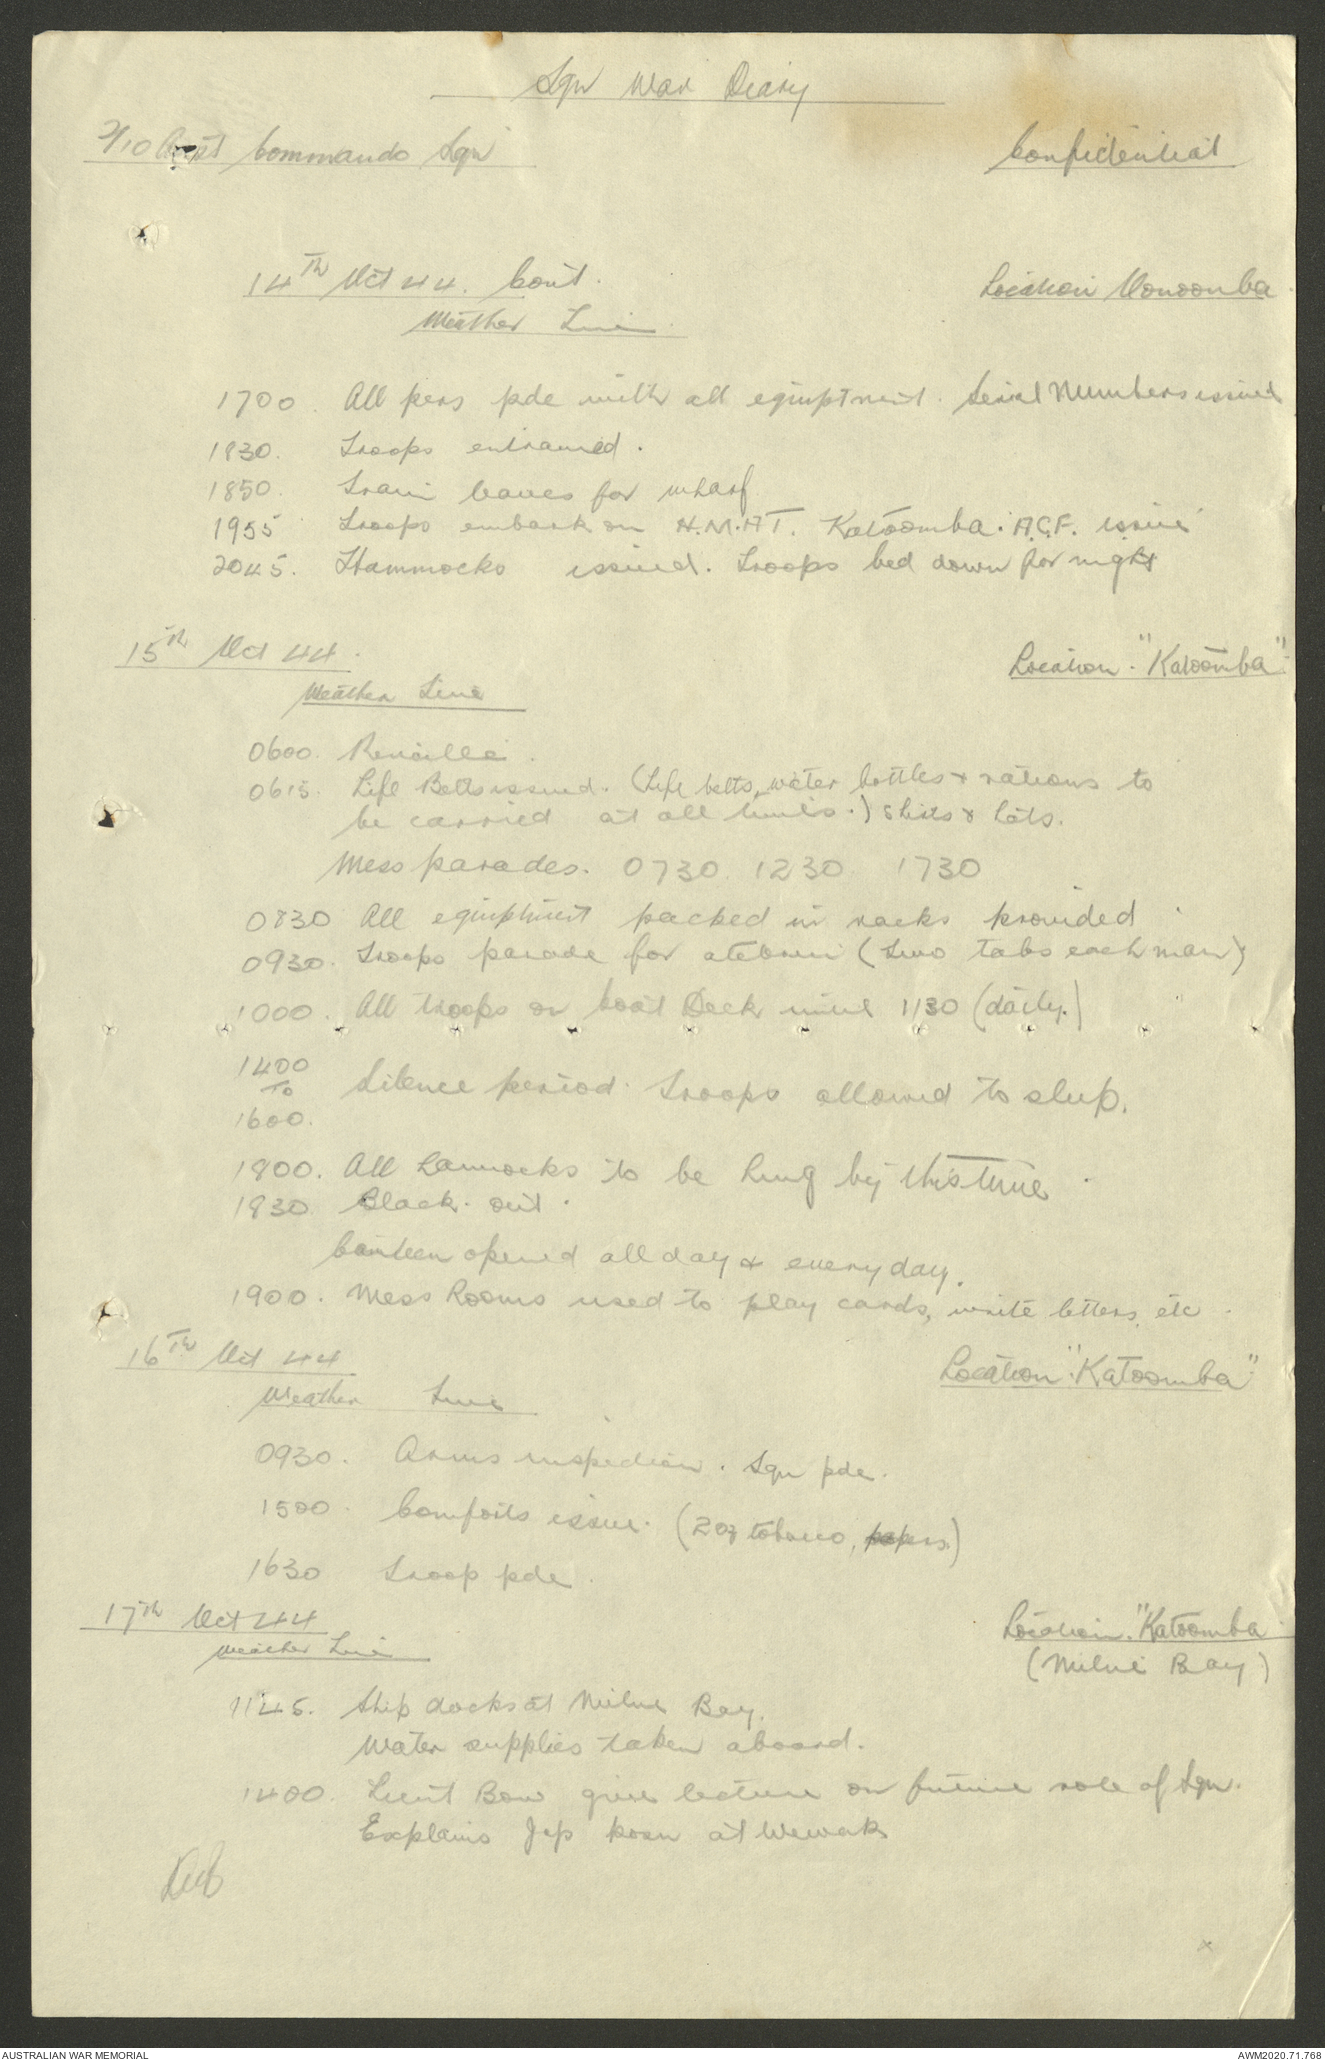 Sqn War Diary
2/10 Aust Commando Sqn
Confidential
14TH Oct 44. Cont.
Location Oonoonba
Weather Fine
1700. All pers pde with all equiptment. Serial Numbers issued
1830. Troops entrained.
1850. Train leaves for wharf
1955 Troops embark on H.M.A.T. Katoomba. A.C.F. issue
2045. Hammocks issued. Troops bed down for night
15th Oct 44.
Location. "Katoomba"
Weather Fine
0600. Reveille.
0615. Life Belts issued. (Life belts, water bottles & rations to
be carried at all times.) Shirts & hats.
Mess parades. 0730 1230 1730
0830 All equiptment packed in racks provided.
0930. Troops parade for atebrin (Two tabs each man)
1000. All troops on boat Deck until 1130 (daily.)
1400
To
1600.
Silence period. Troops allowed to sleep.
1800. All hammocks to be hung by this time.
1830 Black-out.
Canteen opened all day & every day.
1900. Mess Rooms used to play cards, write letters, etc.
16TH Oct 44
Location "Katoomba"
Weather Fine
0930. Arms inspection. Sqn pde.
1500. Comforts issue. (2oz tobacco, papers)
1630 Troop pde.
17th Oct 44
Location. "Katoomba
Weather Fine
(Milne Bay)
1145. Ship docks at Milne Bay.
Water supplies taken aboard.
1400. Lieut Bow give lecture on future role of Sqn.
Explains Jap posn at Wewak
x
AUSTRALIAN WAR MEMORIAL
AWM2020.71.768